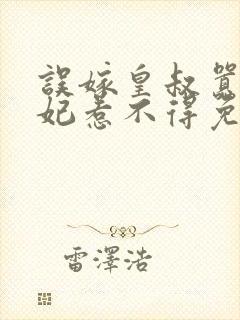 誤嫁皇叔囂
妃惹不得免
雷澤浩